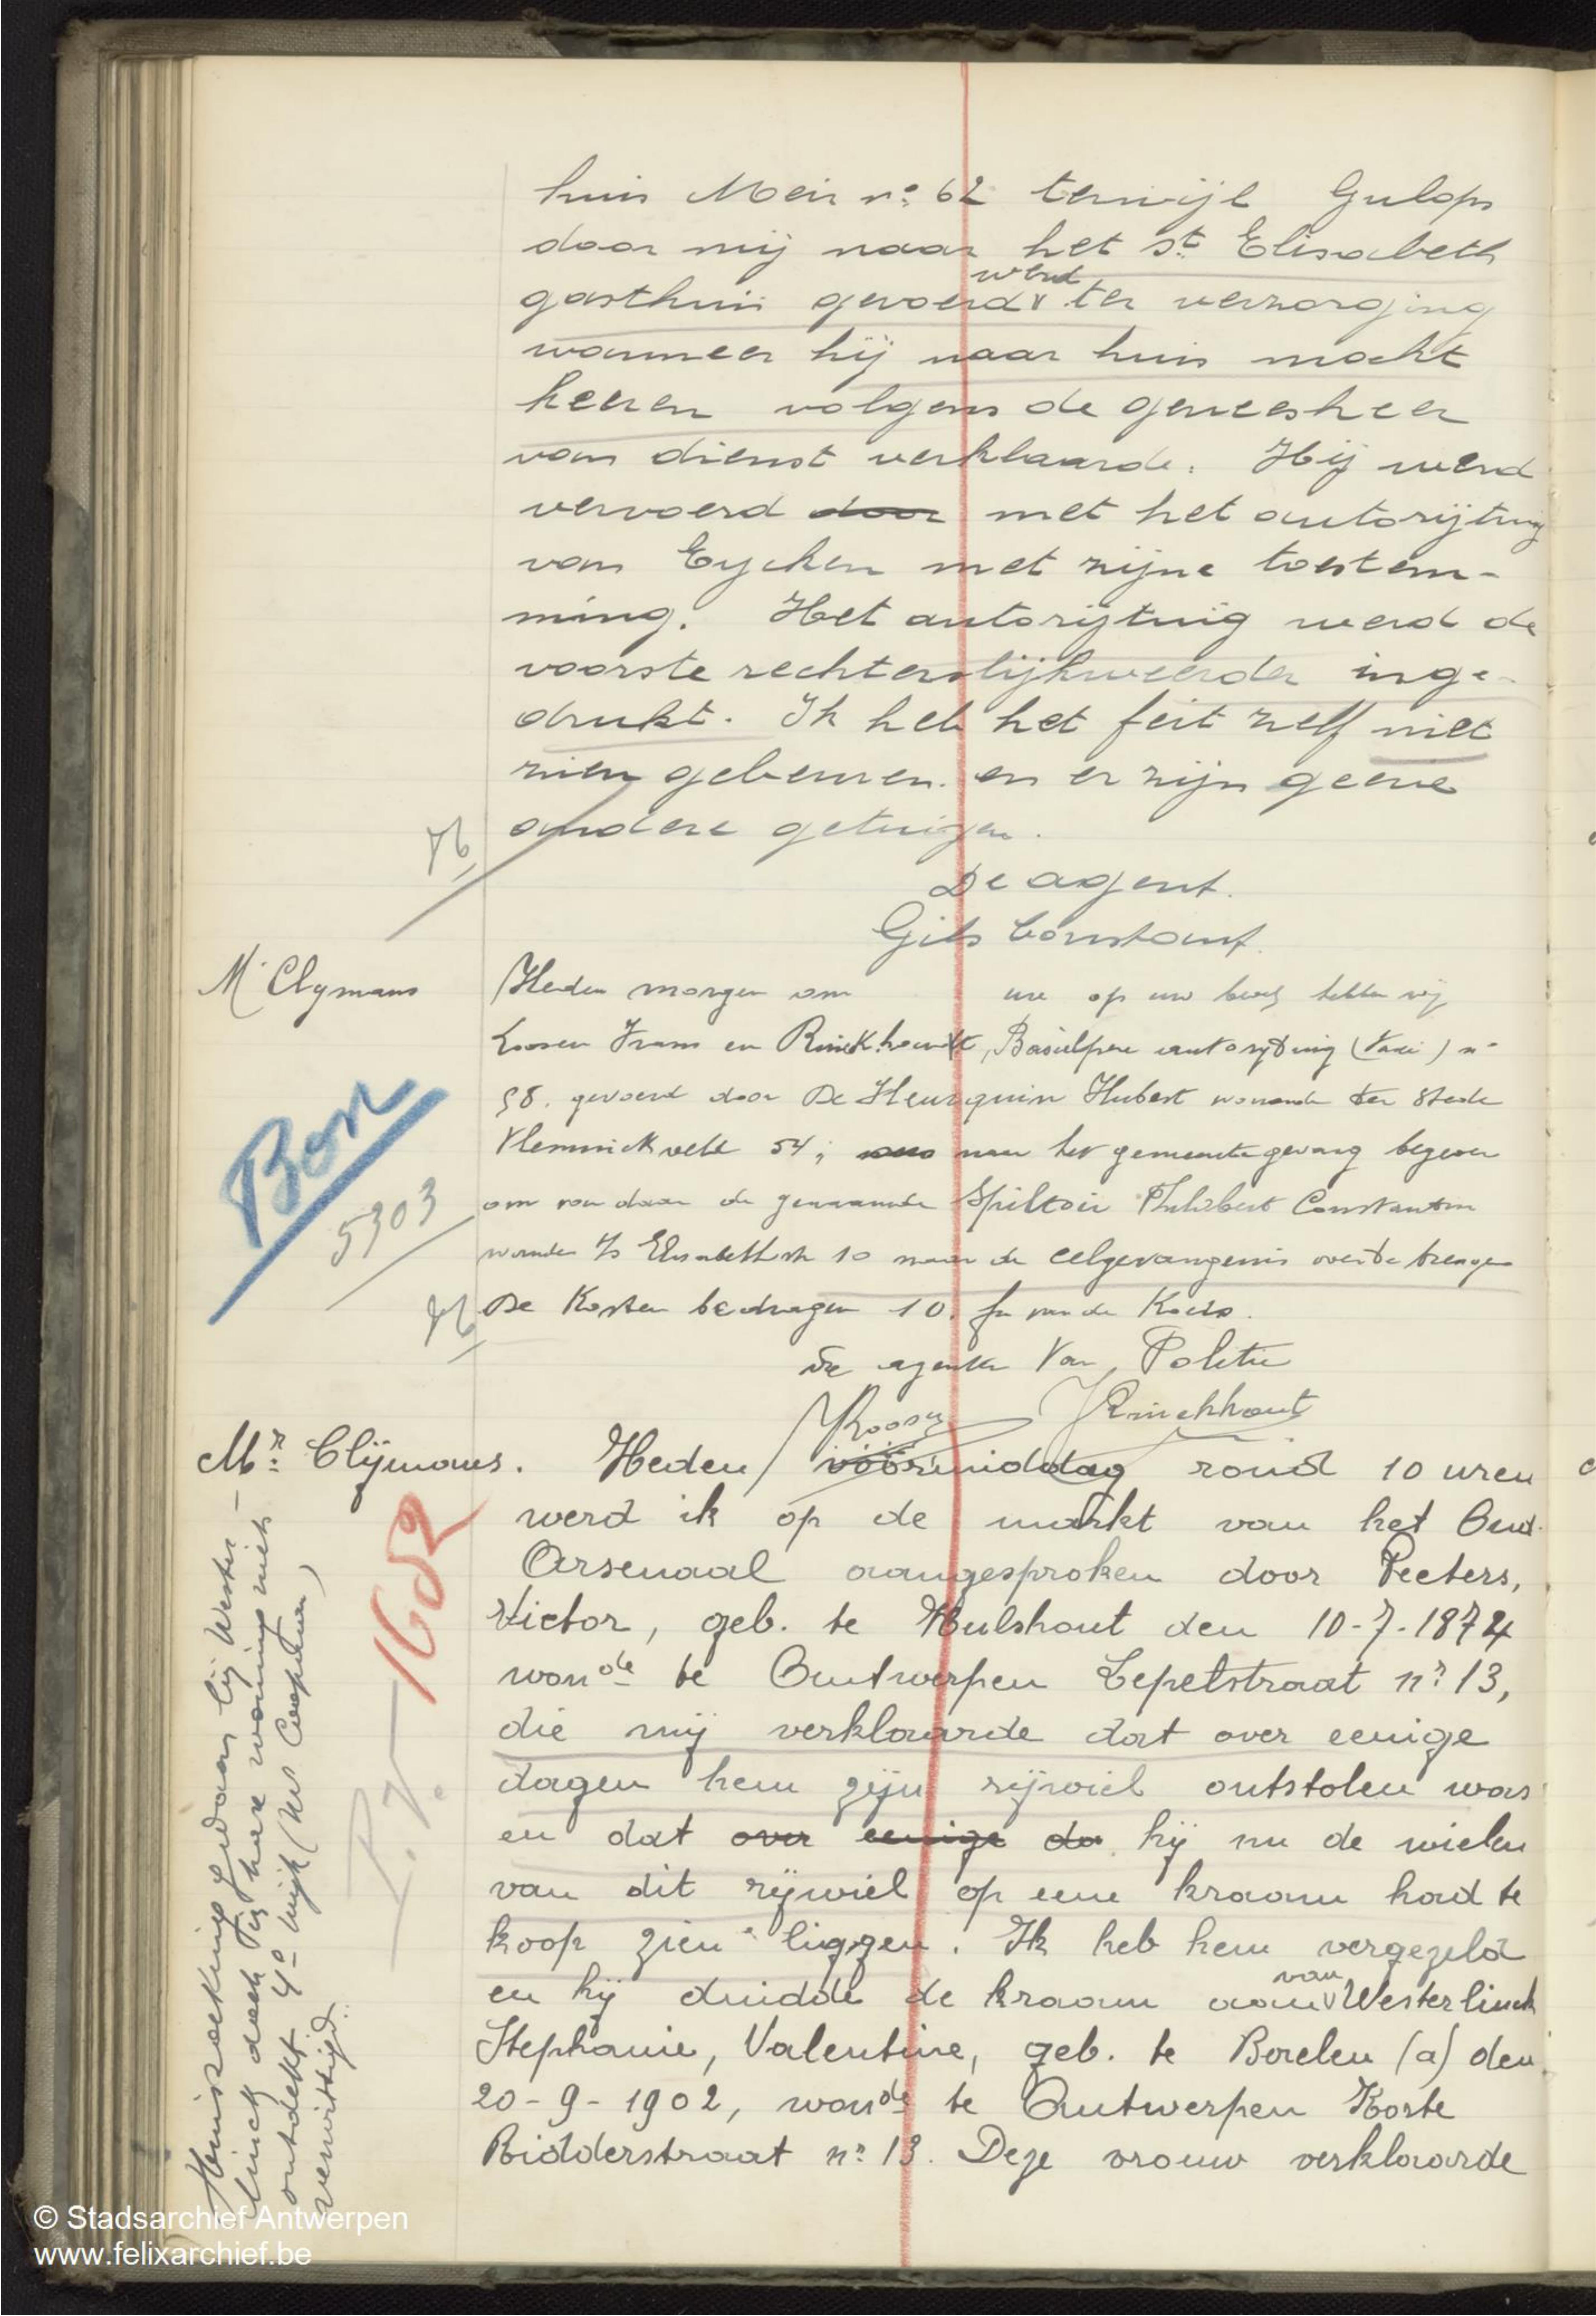 huis Meir n° 62 terwijl Gulops
door mij naar het St Elisabeth
werd
gasthuis gevoerd ter verzorging
wanneer hij naar huis mocht
keeren volgens de geneesheer
van dienst verklaarde. Hij werd
vervoerd door met het autorijtuig
van Eycken met zijne toestem-
ming. Het autorijtuig werd de
voorste rechterslijkweerder inge-
drukt. Ik heb het feit zelf niet
zien gebeuren en er zijn geene
andere getuigen.
De agent.
Gils Constant.
Mr Clymans
Heden morgen om ure op uw bevel hebben wij
Frans en Rinckhoudt, autorytuig (taxi) n°
58. gevoerd door De Heurquin Hubert wonende ter stede
Vleminckveld 54, naar het gemeentegevang begeven
om van daar de genaamde Spiltoir Philibert Constantin
Elisabethstr 10 naar de celgevangenis over te brengen
De Kosten bedragen 10 fr van de Koets.
De agenten Van Politie
Rinckhout
Bon
5903
Mr Clijmans.
Heden voormiddag rond 10 uren
werd ik op de markt van het Oud
Arsenaal aangesproken door Peeters,
Victor, geb. te Hulshout den 10-7-1874
wonde te Antwerpen Lepelstraat n° 13,
die mij verklaarde dat over eenige
dagen hem zijn rijwiel ontstolen was
en dat over eenige da hij nu de wielen
van dit rijwiel op eene kraam had te
koop zien liggen. Ik heb hem vergezeld
van
en hij duidde de kraam aan Westerlinck
Stephanie, Valentine, geb. te Boelen (a) den
20-9-1902, wonde te Antwerpen Korte
Ridderstraat n° 13. Deze vrouw verklaarde
1682
Huiszoeking gedaan bij Wester-
linck doch hare woning niets
ontdekt. 4e wijk
verwittigd.
© Stadsarchief Antwerpen
www.felixarchief.be